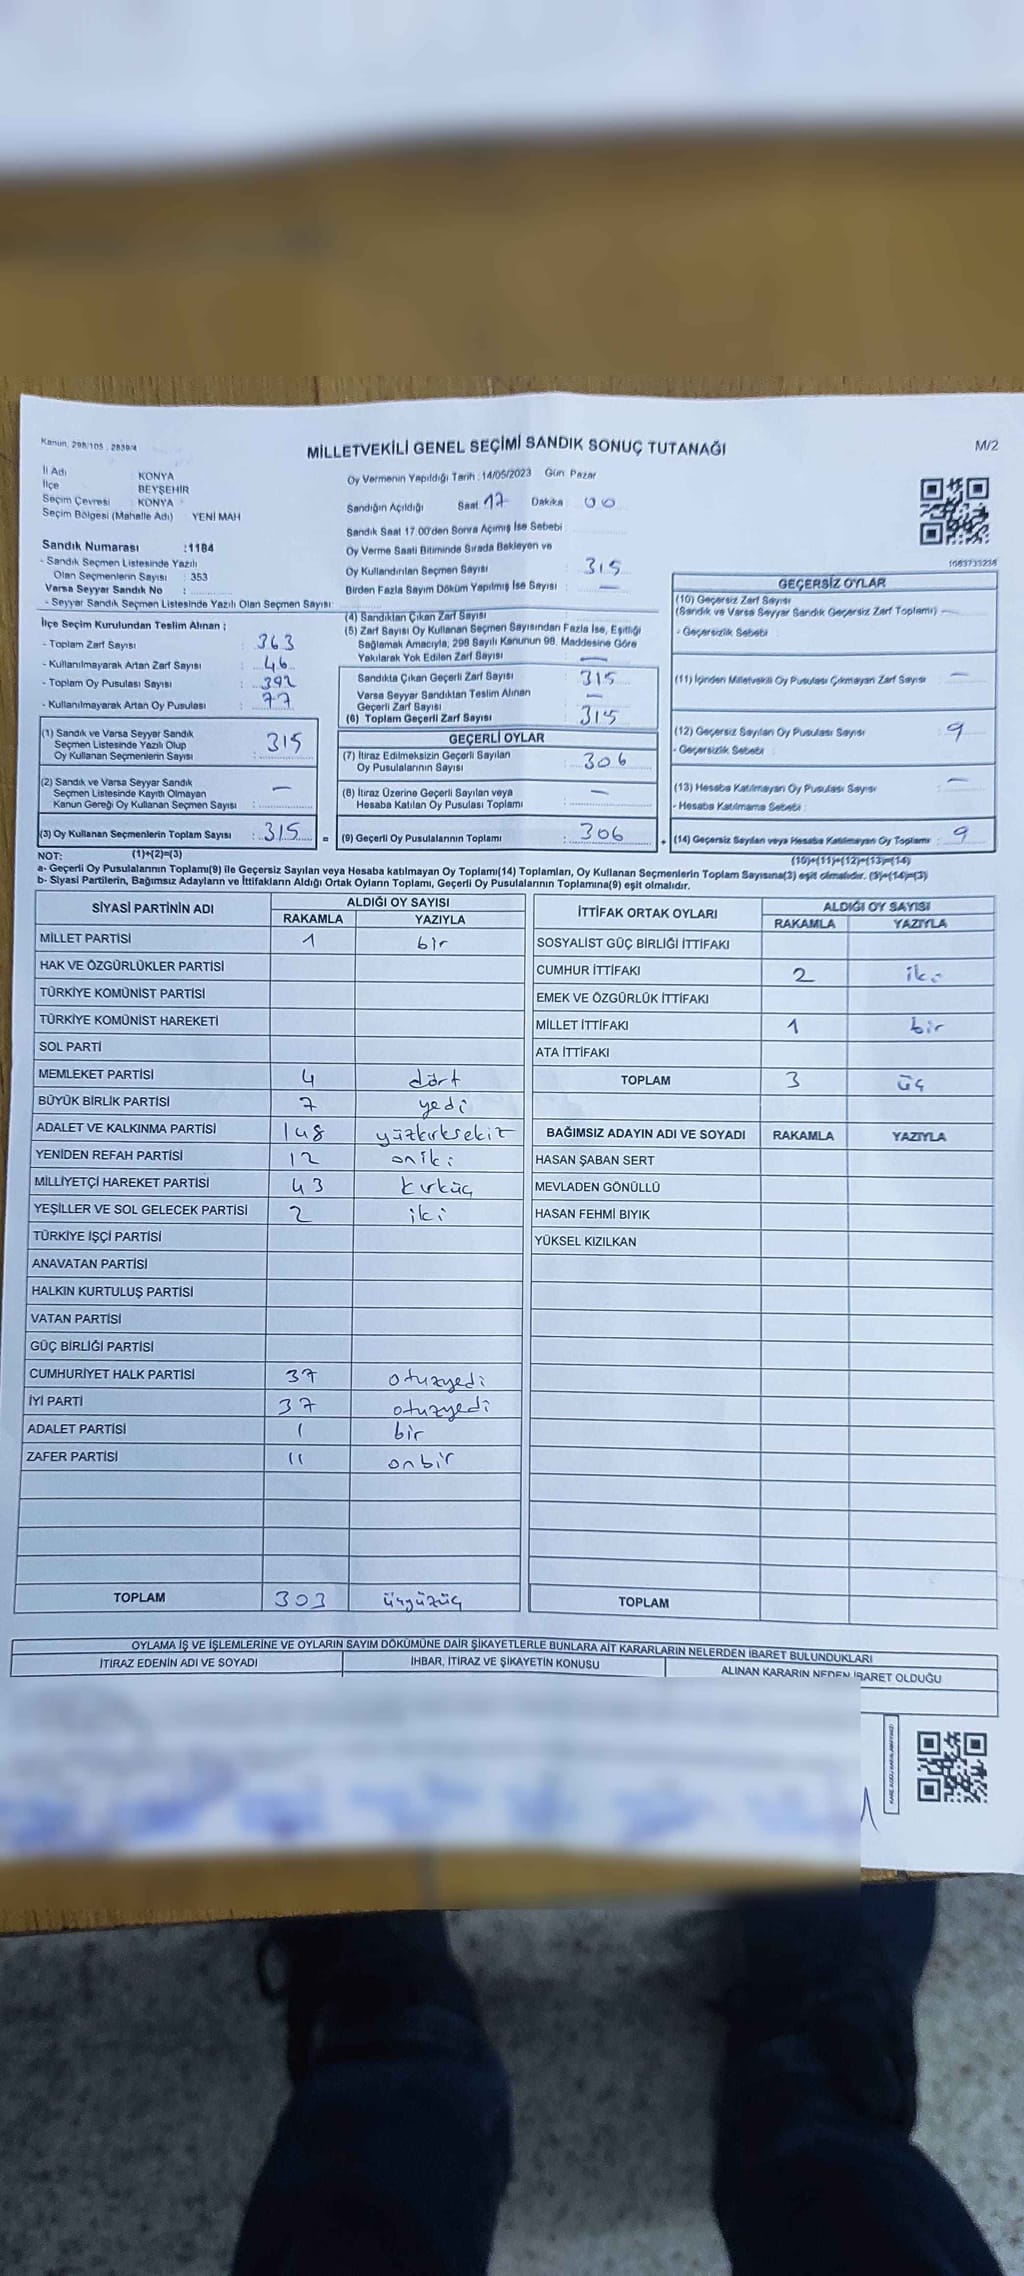 Kanun. 298/105 , 2839/4
MİLLETVEKİLİ GENEL SEÇİMİ SANDIK SONUÇ TUTANAĞI
M/2
İl Adı KONYA
İlçe BEYŞEHİR
Seçim Çevresi : KONYA
Seçim Bölgesi (Mahalle Adı) YENİ MAH
Oy Vermenin Yapıldığı Tarih : 14/05/2023 Gün Pazar
Sandığın Açıldığı Saat 17 Dakika 00
Sandık Saat 17.00'den Sonra Açımış İse Sebebi
Oy Verme Saati Bitiminde Sırada Bekleyen ve
Oy Kullandırılan Seçmen Sayısı : 315
Birden Fazla Sayım Döküm Yapılmış İse Sayısı : —
1083733238
Sandık Numarası :1184
- Sandık Seçmen Listesinde Yazılı
Olan Seçmenlerin Sayısı : 353
Varsa Seyyar Sandık No :
- Seyyar Sandık Seçmen Listesinde Yazılı Olan Seçmen Sayısı:
İlçe Seçim Kurulundan Teslim Alınan ;
- Toplam Zarf Sayısı : 363
- Kullanılmayarak Artan Zarf Sayısı : 46
- Toplam Oy Pusulası Sayısı : 392
- Kullanılmayarak Artan Oy Pusulası : 77
(1) Sandık ve Varsa Seyyar Sandık
Seçmen Listesinde Yazılı Olup
Oy Kullanan Seçmenlerin Sayısı : 315
(2) Sandık ve Varsa Seyyar Sandık
Seçmen Listesinde Kayıtlı Olmayan
Kanun Gereği Oy Kullanan Seçmen Sayısı : —
(3) Oy Kullanan Seçmenlerin Toplam Sayısı : 315 =
(1)+(2)=(3)
(4) Sandıktan Çıkan Zarf Sayısı
(5) Zarf Sayısı Oy Kullanan Seçmen Sayısından Fazla İse, Eşitliği
Sağlamak Amacıyla, 298 Sayılı Kanunun 98. Maddesine Göre
Yakılarak Yok Edilen Zarf Sayısı : —
Sandıkta Çıkan Geçerli Zarf Sayısı : 315
Varsa Seyyar Sandıktan Teslim Alınan
Geçerli Zarf Sayısı : —
(6) Toplam Geçerli Zarf Sayısı : 315
GEÇERLİ OYLAR
(7) İtiraz Edilmeksizin Geçerli Sayılan
Oy Pusulalarının Sayısı : 306
(8) İtiraz Üzerine Geçerli Sayılan veya
Hesaba Katılan Oy Pusulası Toplamı : —
(9) Geçerli Oy Pusulalarının Toplamı : 306 +
GEÇERSİZ OYLAR
(10) Geçersiz Zarf Sayısı
(Sandık ve Varsa Seyyar Sandık Geçersiz Zarf Toplamı) —
- Geçersizlik Sebebi :
(11) İçinden Milletvekili Oy Pusulası Çıkmayan Zarf Sayısı —
(12) Geçersiz Sayılan Oy Pusulası Sayısı 9
- Geçersizlik Sebebi :
(13) Hesaba Katılmayan Oy Pusulası Sayısı —
- Hesaba Katılmama Sebebi :
(14) Geçersiz Sayılan veya Hesaba Katılmayan Oy Toplamı : 9
(10)+(11)+(12)+(13)=(14)
NOT:
a- Geçerli Oy Pusulalarının Toplamı(9) ile Geçersiz Sayılan veya Hesaba katılmayan Oy Toplamı(14) Toplamları, Oy Kullanan Seçmenlerin Toplam Sayısına(3) eşit olmalıdır. (9)+(14)=(3)
b- Siyasi Partilerin, Bağımsız Adayların ve İttifakların Aldığı Ortak Oyların Toplamı, Geçerli Oy Pusulalarının Toplamına(9) eşit olmalıdır.
SİYASİ PARTİNİN ADI ALDIĞI OY SAYISI
RAKAMLA YAZIYLA
MİLLET PARTİSİ 1 bir
HAK VE ÖZGÜRLÜKLER PARTİSİ
TÜRKİYE KOMÜNİST PARTİSİ
TÜRKİYE KOMÜNİST HAREKETİ
SOL PARTİ
MEMLEKET PARTİSİ 4 dört
BÜYÜK BİRLİK PARTİSİ 7 yedi
ADALET VE KALKINMA PARTİSİ 148 yüzkırksekiz
YENİDEN REFAH PARTİSİ 12 oniki
MİLLİYETÇİ HAREKET PARTİSİ 43 kırküç
YEŞİLLER VE SOL GELECEK PARTİSİ 2 iki
TÜRKİYE İŞÇİ PARTİSİ
ANAVATAN PARTİSİ
HALKIN KURTULUŞ PARTİSİ
VATAN PARTİSİ
GÜÇ BİRLİĞİ PARTİSİ
CUMHURİYET HALK PARTİSİ 37 otuzyedi
İYİ PARTİ 37 otuzyedi
ADALET PARTİSİ 1 bir
ZAFER PARTİSİ 11 onbir
TOPLAM 303 üçyüzüç
İTTİFAK ORTAK OYLARI ALDIĞI OY SAYISI
RAKAMLA YAZIYLA
SOSYALİST GÜÇ BİRLİĞİ İTTİFAKI
CUMHUR İTTİFAKI 2 iki
EMEK VE ÖZGÜRLÜK İTTİFAKI
MİLLET İTTİFAKI 1 bir
ATA İTTİFAKI
TOPLAM 3 üç
BAĞIMSIZ ADAYIN ADI VE SOYADI RAKAMLA YAZIYLA
HASAN ŞABAN SERT
MEVLADEN GÖNÜLLÜ
HASAN FEHMİ BIYIK
YÜKSEL KIZILKAN
TOPLAM
OYLAMA İŞ VE İŞLEMLERİNE VE OYLARIN SAYIM DÖKÜMÜNE DAİR ŞİKAYETLERLE BUNLARA AİT KARARLARIN NELERDEN İBARET BULUNDUKLARI
İTİRAZ EDENİN ADI VE SOYADI İHBAR, İTİRAZ VE ŞİKAYETİN KONUSU ALINAN KARARIN NEDEN İBARET OLDUĞU